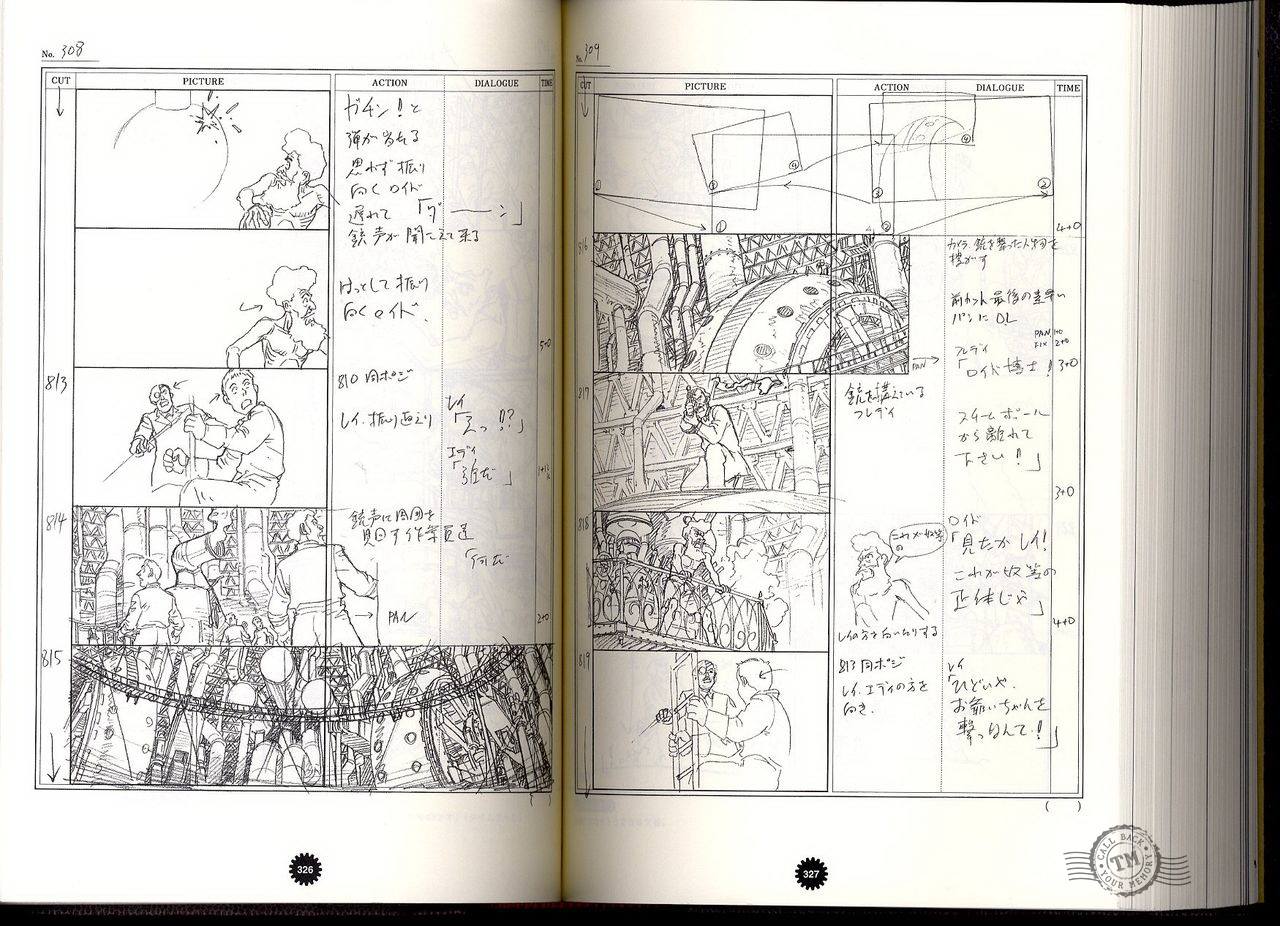 No. 308
CUT PICTURE ACTION DIALOGUE TIME
ガチン!と
弾が当たる
思わず振り
向くロイド
遅れて 「ダーーーン」
銃声が聞こえて来る
はっとして振り
向くロイド.
5+0
813
810 同ポジ
レイ.振り返り
レイ
「えっ!!?」
エディ
「誰だ」
814
銃声に周囲を
見回す作業員達
「何だ
PAN
2+0
815
326
No. 309
CUT PICTURE ACTION DIALOGUE TIME
① ④ ① ③ ④ ② ②
4+0
816
カメラ.銃を撃った人物を
捜がす
前カット最後の素早い
パンに OL
PAN 1+0
FIX 2+0
フレディ
「ロイド博士!
3+0
PAN
817
銃を構えている
フレディ
スチームボール
から離れて
下さい!」
3+0
818
これが奴等の
レイの方を向いたりする
ロイド
「見たかレイ!
これが奴等の
正体じゃ」
4+0
819
813 同ポジ
レイ.エディの方を
向き.
レイ
「ひどいや.
お爺いちゃんを
撃つなんて!」
( )
327
CALL BACK
TM
YOUR MEMORY